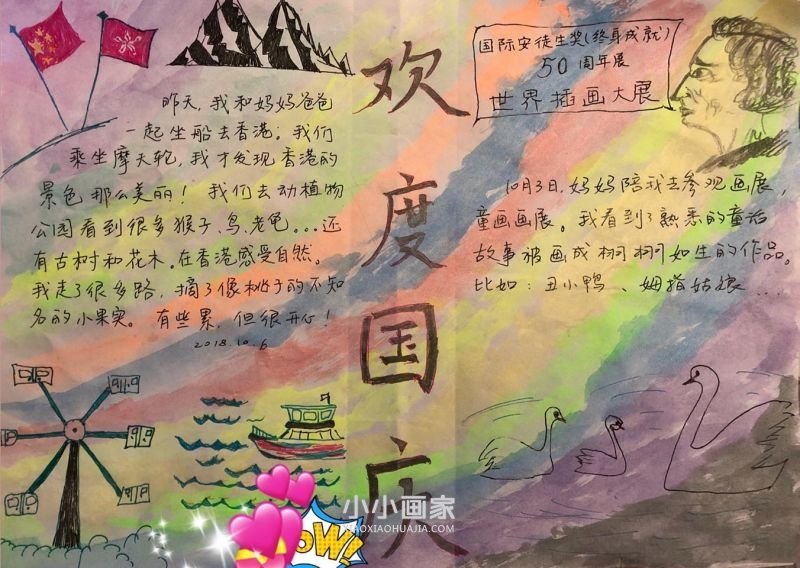 欢度国庆
昨天,我和妈妈爸爸
一起坐船去香港。我们
乘坐摩天轮,我才发现香港的
景色那么美丽!我们去动植物
公园看到很多猴子、鸟、老龟...还
有古树和花木。在香港感受自然。
我走了很多路,摘了像桃子的不知
名的小果实。有些累,但很开心!
2018.10.6
国际安徒生奖(终身成就)
50周年展
世界插画大展
10月3日,妈妈陪我去参观画展,
童画画展。我看到了熟悉的童话
故事被画成栩栩如生的作品。
比如:丑小鸭、姆指姑娘...
小小画家
XIAOXIAOHUAJIA.COM
WOW!